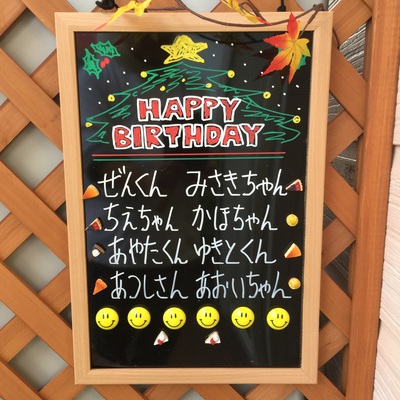 HAPPY
BIRTHDAY
ぜんくん みさきちゃん
ちえちゃん かほちゃん
あやたくん ゆきとくん
あつしさん あおいちゃん